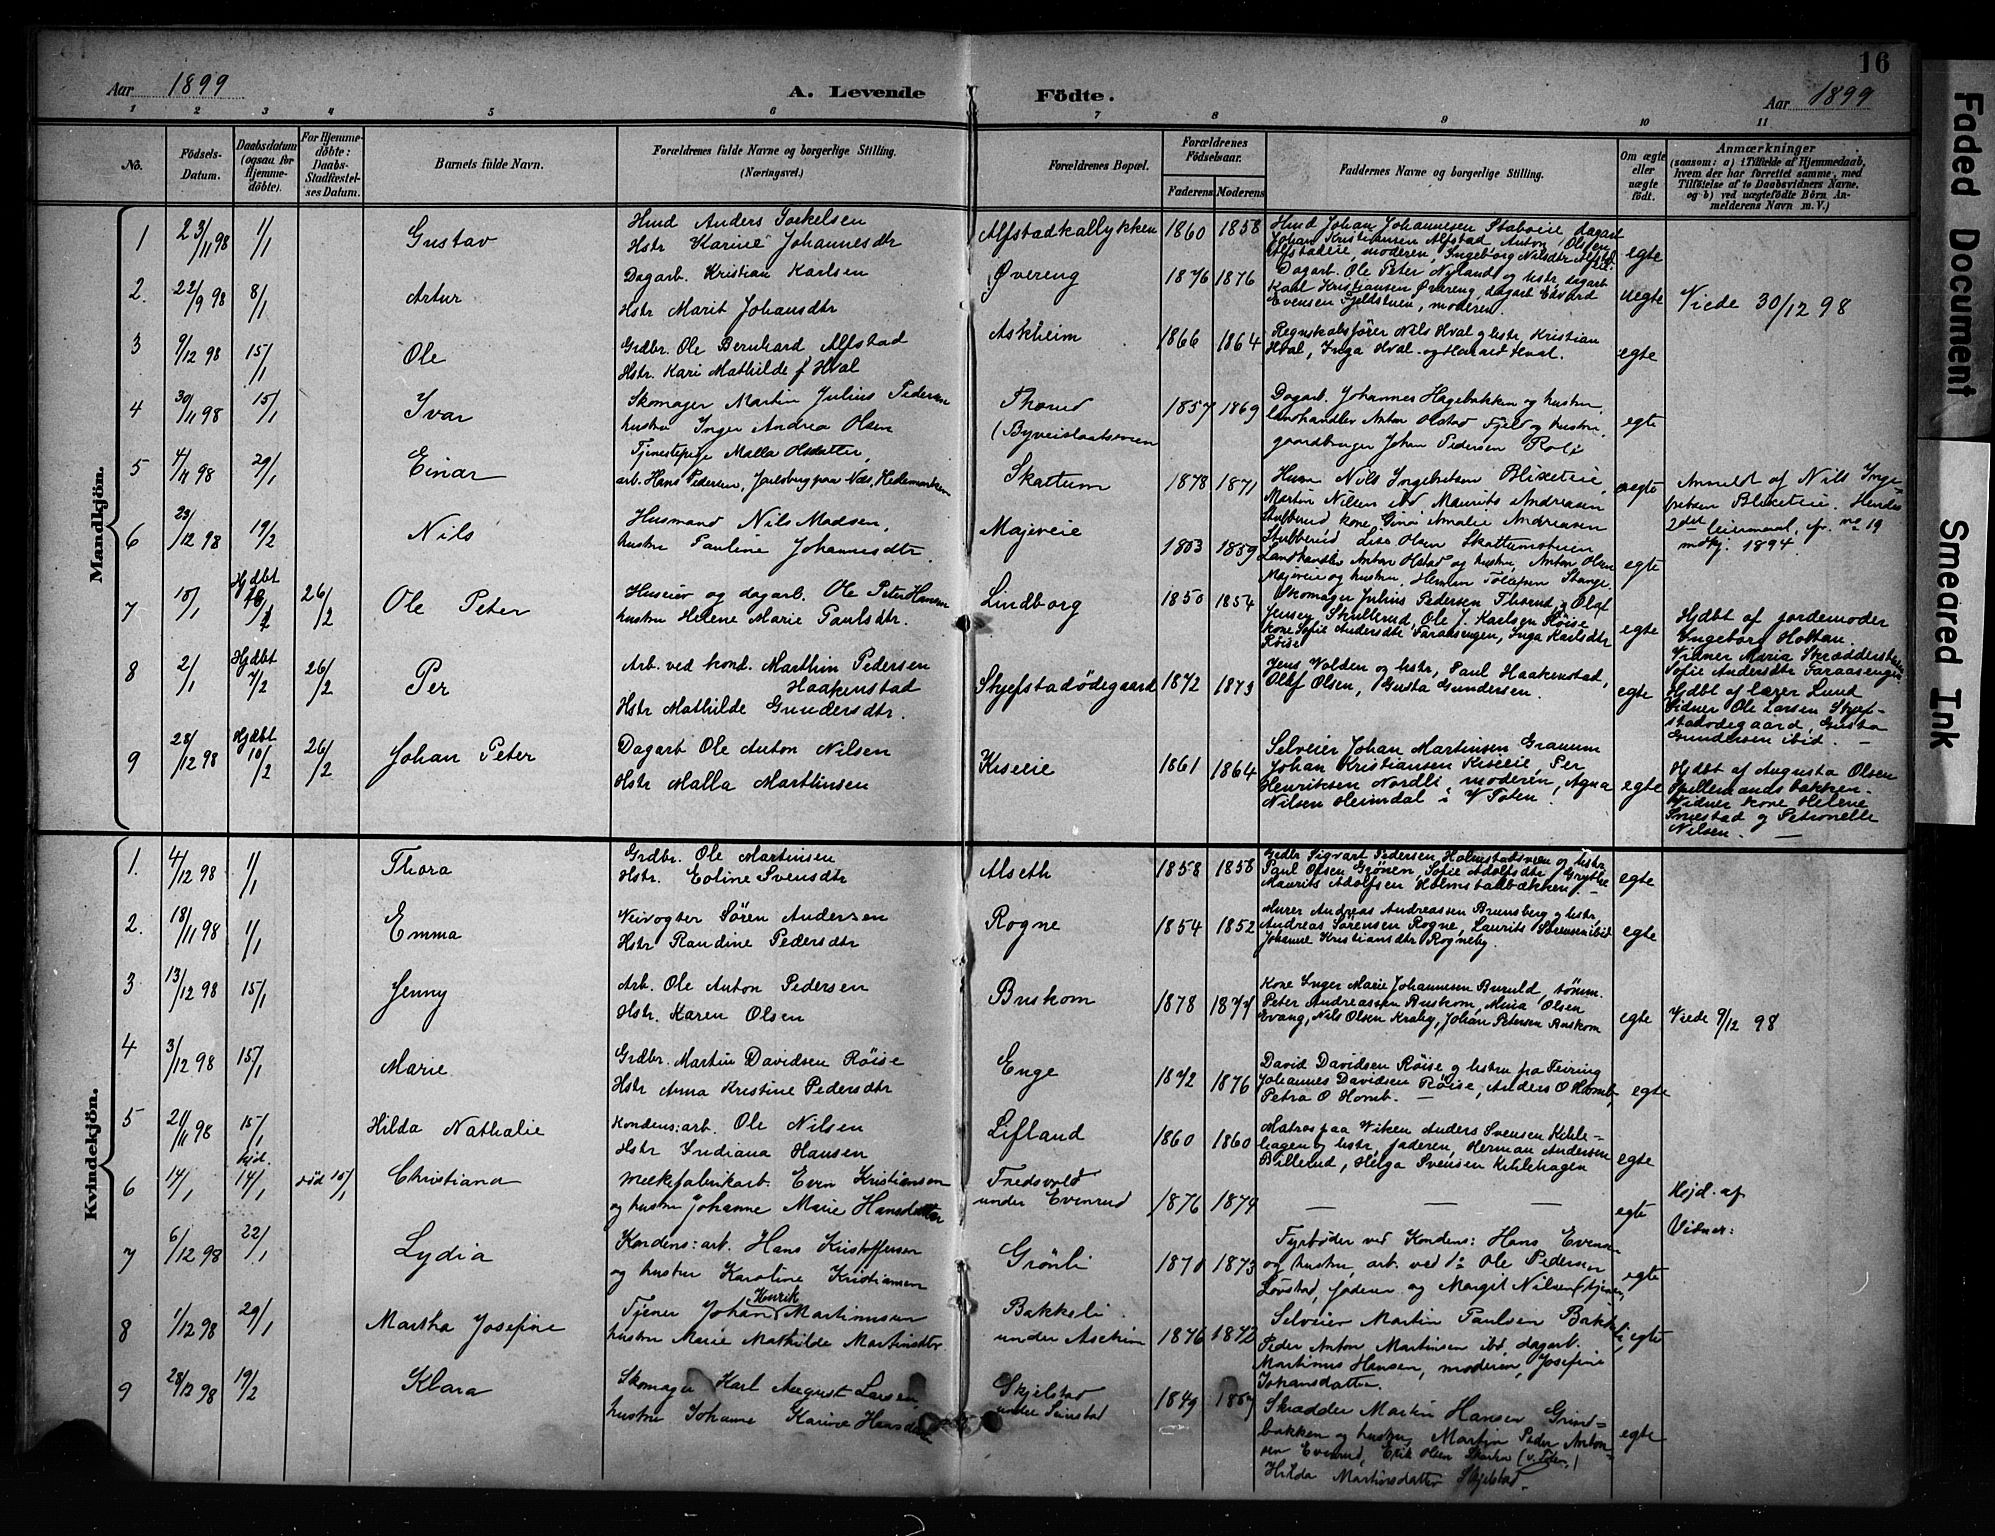 16
Aar 1899
A. Levende Födte.
Aar 1899
1 2 3 4 5 6 7 8 9 10 11
No.
Födsels-Datum.
Daabsdatum (ogsaa for Hjemmedöbte).
For Hjemmedöbte: Daabs-Stadfæstelses Datum.
Barnets fulde Navn.
Forældrenes fulde Navne og borgerlige Stilling. (Næringsvei.)
Forældrenes Bopæl.
Forældrenes Födselsaar.
Faderens Moderens
Faddernes Navne og borgerlige Stilling.
Om ægte eller uægte födt.
Anmærkninger
(saasom: a) i Tilfælde af Hjemmedaab, hvem der har forrettet samme, med Tilföielse af to Daabsvidners Navne, og b) ved uægtefödte Börn Anmelderens Navn m. V.)
Mandkjön.
1 23/11 98 1/1 Gustav
Hmd Anders Torkelsen
Hstr Karine Johannesdtr
Alfstadkallykken 1860 1858
Hmd Johan Johannesen Stabveie dagarb
Johan Kristiansen Alfstad, Anton Olsen
Alfstadeie, moderen, Ingeborg Nilsdtr Alfstadeie.
egte
2. 22/9 98 8/1 Artur
Dagarb. Kristian Karlsen
Hstr Marit Johansdtr
Övereng 1876 1876
Dagarb. Ole Peter Nyland og hstr, dagarb
Karl Kristiansen Övereng, dagarb Edvard
Evensen Fjeldstuen, moderen.
uegte
Viede 30/12 98
3 9/12 98 15/1 Ole
Grdbr. Ole Bernhard Alfstad
Hstr. Kari Mathilde f Hval
Askheim 1866 1864
Regnskabsfører Nils Hval og hstr, Kristian
Hval, Inga Hval og Harald Hval.
egte
4 30/11 98 15/1 Ivar
Skomager Martin Julius Pedersen
hustru Inger Andrea Olsen
Thorud 1857 1869
Dagarb. Johannes Hagebakken og hustru,
landhandler Anton Olstad Fjeld og hustru,
gaardbruger Johan Pedersen Roli
egte
5 4/11 98 29/1 Einar
Tjenestepige Malla Olsdatter,
arb. Hans Pedersen, Jarlsberg paa Næs, Hedemarken
Skattum 1878 1871
Husm Nils Ingebretsen Blixeteie,
Martin Nilsen ibd Maurits Andreasen
Stubberud kone Gina Amalie Andreasen
Stubberud Lise Olsen Skattumstuen
uegte
Anmeldt af Nils Inge-
bretsen Blixeteie. Hendes
2det leiermaal, cfr. no 19
mdkj. 1894.
6 23/12 98 19/2 Nils
Husmand Nils Madsen,
hustru Pauline Johannesdtr.
Majeveie 1853 1859
Landhandler Anton Olstad og hustru, Anton Olsen
Majeveie og hustru, Herman Tollefsen Stange
egte
7 18/1 Hjdbt 26/2 Ole Peter
Huseier og dagarb. Ole Peter Hansen
hustru Helene Marie Paulsdtr.
Lindborg 1850 1854
Skomager Julius Pedersen Thorud, Olaf
Jensen Skullerud, Ole J. Karlsen Røise
kone Sofie Andersdtr Faraasengen, Inga Karlsdtr
Røise
egte
Hjdbt af jordemoder
Ingeborg Hottan.
Vidner Maria Skrædderstuen
Sofie Andersdtr Faraasengen
8 2/1 Hjdbt 7/2 26/2 Per
Arb. ved kond. Marthin Pedersen
Haakenstad
Hstr Mathilde Gundersdtr.
Skjefstadødegaard 1872 1873
Jens Volden og hstr, Paul Haakenstad,
Olaf Olsen, Gusta Gundersen.
egte
Hjdbt af lærer Lund
Vidner Ole Larsen Skjef-
stadødegaard, Gusta
Gundersen ibid. —
9 28/12 98 Hjdbt 10/2 26/2 Johan Peter
Dagarb Ole Anton Nilsen
Hstr Malla Marthinsen
Kiseeie 1861 1864
Selveier Johan Martinsen Granum
Johan Kristiansen Kiseeie Per
Henriksen Nordli, moderen, Agna
Nilsen Heimdal i V Toten.
egte
Hjdbt af Augusta Olsen
Spillemandsbakken.
Vidner kone Helene
Smestad og Petronelle
Nilsen. —
Kvindekjön.
1. 4/12 98 1/1 Thora
Grdbr. Ole Martinsen
Hstr. Eoline Svensdtr
Alseth 1858 1858
Grdbr Sigvart Pedersen Holmstadsveen og hstr
Paul Olsen Grønen, Sofie Adolfsdtr Grythe
Maurits Adolfsen Holmstadbækken. —
egte
2. 18/11 98 1/1 Emma
Veivogter Søren Andersen
Hstr Randine Pedersdtr
Rogne 1854 1852
Murer Andreas Andreassen Brunsberg og hstr,
Andreas Sørensen Rogne, Laurits Sørensen ibid
Johanne Kristiansdtr Rogneby.
egte
3 13/12 98 15/1 Jenny
Arb. Ole Anton Pedersen
Hstr. Karen Olsen
Buskom 1878 1877
Kone Inger Marie Johannesen Buruld, tømm.
Peter Andreassen Buskom, Mina Olsen
Evang, Nils Olsen Kraby, Johan Petersen Buskom
egte
Viede 9/12 98
4 3/12 98 15/1 Marie
Grdbr. Martin Davidsen Røise
Hstr Anna Kristine Pedersdtr
Enge 1872 1876
David Davidsen Røise og hstru paa Feiring
Johannes Davidsen Røise, Anders O Homb,
Petra O Homb. —
egte
5 21/11 98 15/1 Hilda Nathalie
Kondens: arb. Ole Nilsen
Hstr Indiana Hansen
Lifland 1860 1860
Matros paa Viken Anders Svensen Kihle-
hagen og hstr, faderen, Herman Andersen
Billerud, Helga Svensen Kihlehagen
egte
6 14/1 hjd. 14/1 død 15/1 Christiana
Melkfabrikarb. Even Kristiansen
og hustru Johanne Marie Hansdatter
Fredsvold
under Evenrud 1876 1874
— — —
egte
Hjd. af
Vidner:
7 6/12 98 22/1 Lydia
Kondens: arb. Hans Kristoffersen
og hustru Karoline Kristiansen
Grönli 1870 1873
Fyrbøder ved Kondens: Hans Evensen
og hustru, arb. ved do Ole Pedersen
Lövstad, faderen og Margit Nilsen
egte
8 1/12 98 29/1 Martha Josefine
Henrik
Tjener Johan Martinussen
hustru Marie Mathilde Martinsdtr
Bakkeli
under Askim 1876 1872
Selveier Martin Paulsen Bakkeli,
Peder Anton Martinsen ibd, dagarb.
Martinus Hansen, moderen, Josefine
Johansdatter.
egte
9 28/12 98 19/2 Klara
Skomager Karl August Larsen,
hustru Johanne Karine Hansdatter
Skjelstad
under Seinstad 1849 1857
Skrædder Martin Hansen Grind-
bakken og hustru, Martin Peder Anton-
sen Evenrud, Erik Olsen (V. Toten)
Hilda Martinsdatter Skjelstad.
egte
Faded Document
Smeared Ink